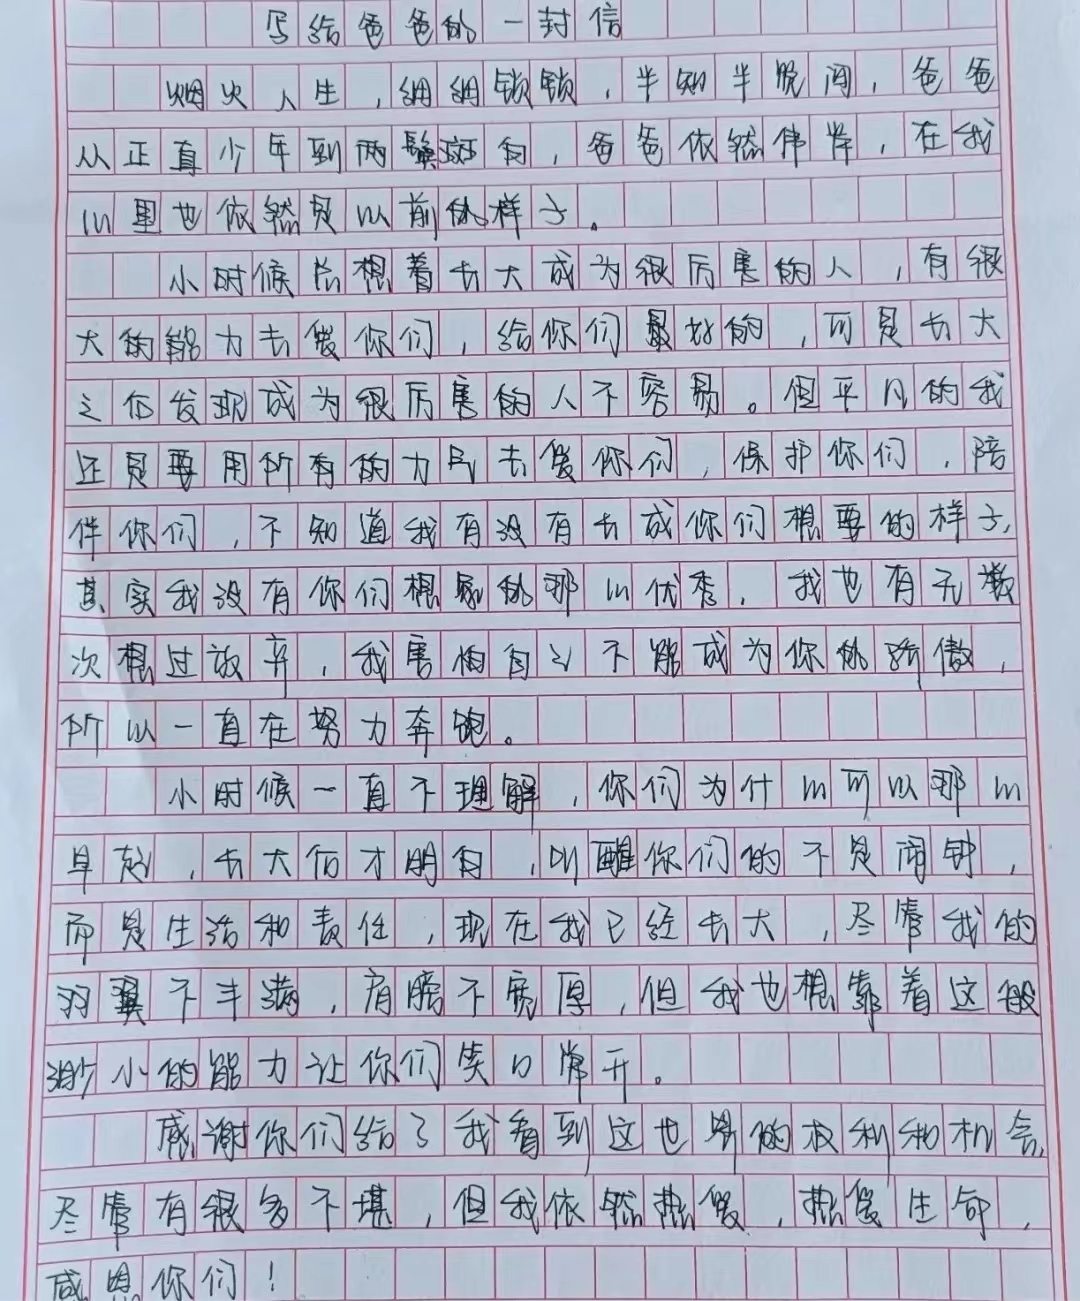 写给爸爸的一封信
烟火人生，细细锁锁，半知半脱间，爸爸
从正直少年到两鬓斑白，爸爸依然伟岸，在我
心里也依然是以前的样子。
小时候总想着长大成为很厉害的人，有很
大的能力去爱你们，给你们最好的，可是长大
之后发现成为很厉害的人不容易。但平凡的我
还是要用所有的力气去爱你们，保护你们，陪
伴你们，不知道我有没有长成你们想要的样子，
其实我没有你们想象的那么优秀，我也有无数
次想过放弃，我害怕自己不能成为你的骄傲，
所以一直在努力奔跑。
小时候一直不理解，你们为什么可以那么
早起，长大后才明白，叫醒你们的不是闹钟，
而是生活和责任，现在我已经长大，尽管我的
羽翼不丰满，肩膀不宽厚，但我也想靠着这般
渺小的能力让你们笑口常开。
感谢你们给了我看到这世界的权利和机会，
尽管有很多不堪，但我依然热爱，热爱生命，
感恩你们！